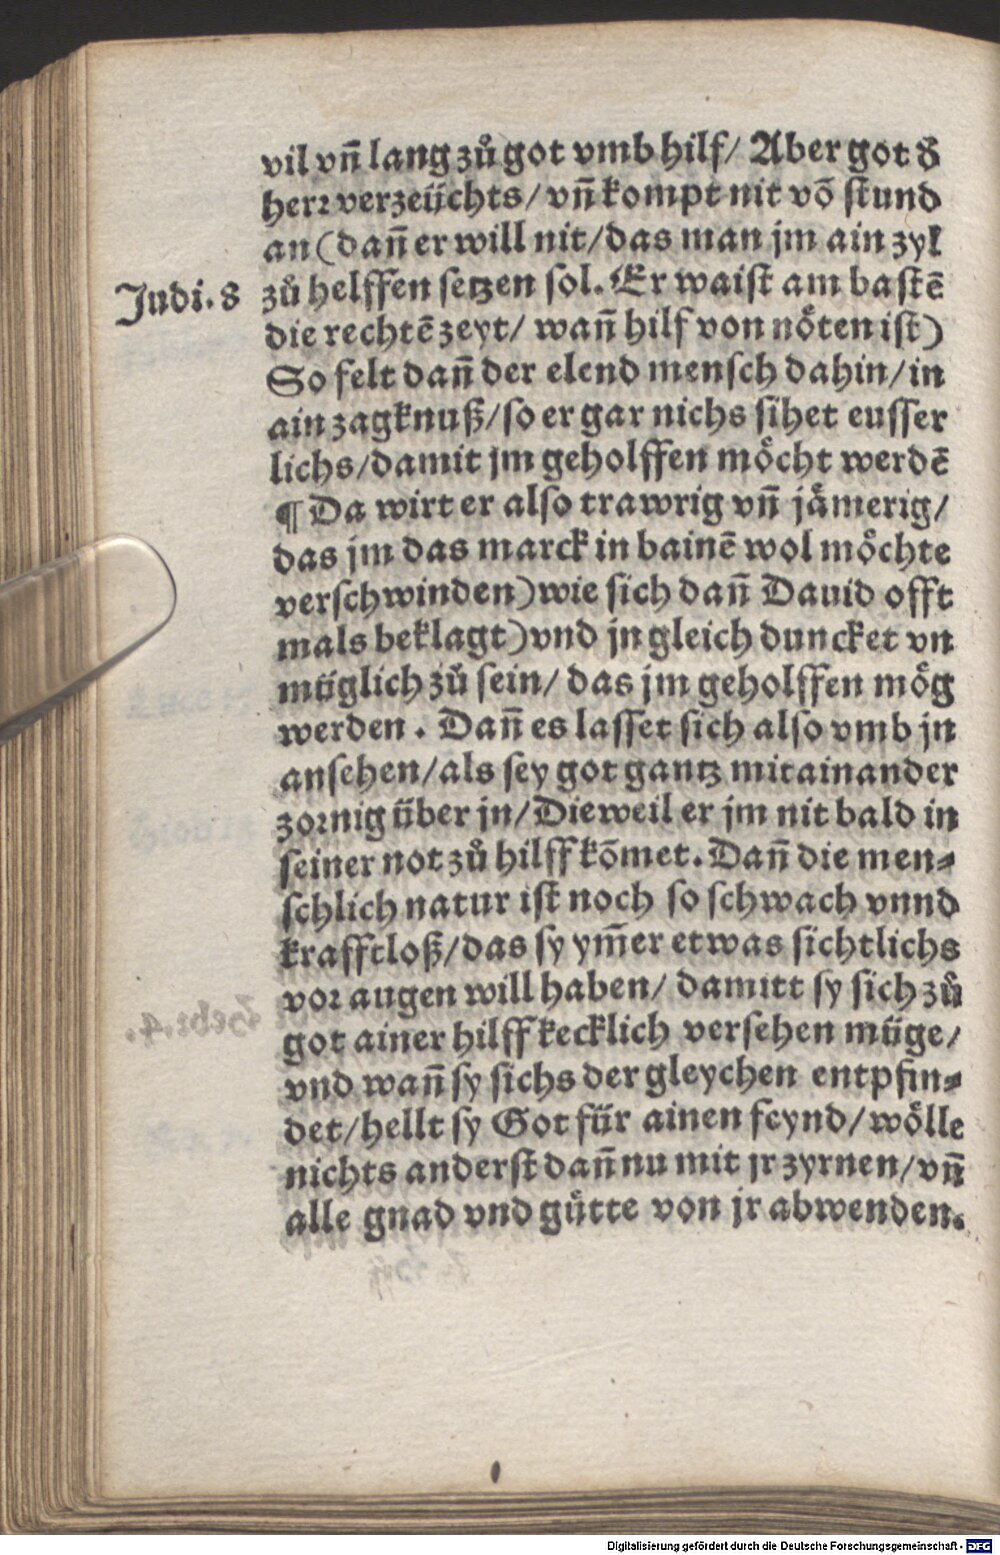 vil vñ lang zů got vmb hilf/ Aber got d̕
herr verzeüchts/ vñ kompt nit vō stund
an (dañ er will nit/das man jm ain zyl
Judi. 8
zů helffen setzen sol. Er waist am bastē
die rechtē zeyt/ wañ hilf von nöten ist)
So felt dañ der elend mensch dahin/in
ain zagknuß/so er gar nichs sihet eusser
lichs/damit jm geholffen möcht werdē
¶ Da wirt er also trawrig vñ jämerig/
das jm das marck in bainē wol möchte
verschwinden) wie sich dañ Dauid offt
mals beklagt) vnd jn gleich duncket vn
müglich zů sein/ das jm geholffen mög
werden. Dañ es lasset sich also vmb jn
ansehen/als sey got gantz mitainander
zornig über jn/ Dieweil er jm nit bald in
seiner not zů hilff kōmet. Dañ die men⸗
schlich natur ist noch so schwach vnnd
krafftloß/das sy ym̄er etwas sichtlichs
vor augen will haben/ damitt sy sich zů
got ainer hilff kecklich versehen müge/
vnd wañ sy sichs der gleychen entpfin⸗
det/hellt sy Got für ainen feynd/wölle
nichts anderst dañ nu mit jr zyrnen/vñ
alle gnad vnd gůtte von jr abwenden.
Digitalisierung gefördert durch die Deutsche Forschungsgemeinschaft - DFG